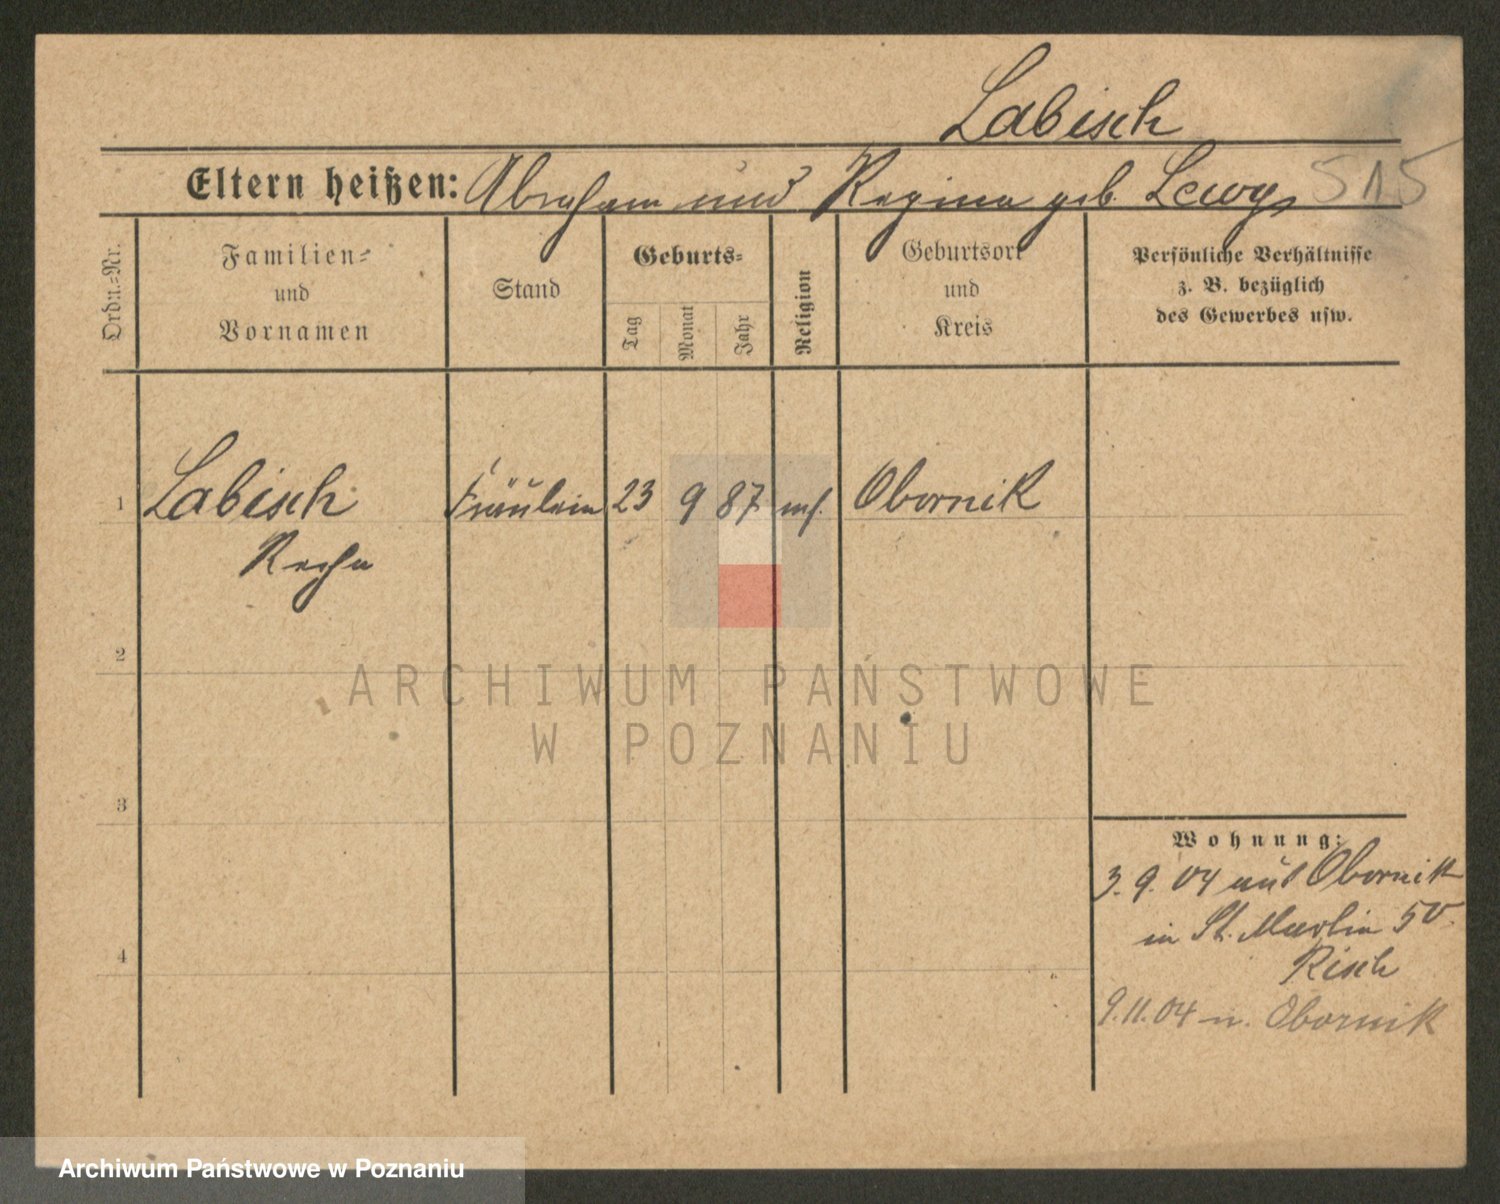 Labisch
Eltern heißen: Abraham und Regina geb. Lewy
515
Ordn.-Nr.
Familien-
und
Vornamen
Stand
Geburts-
Tag
Monat
Jahr
Religion
Geburtsort
und
Kreis
Persönliche Verhältnisse
z. B. bezüglich
des Gewerbes usw.
1 Labisch Fräulein 23 9 87 mos. Obornik
Recha
2
3
4
Wohnung:
3. 9. 04 aus Obornik
in St. Martin 50.
Risch
9.11.04 n. Obornik
ARCHIWUM PAŃSTWOWE
W POZNANIU
Archiwum Państwowe w Poznaniu